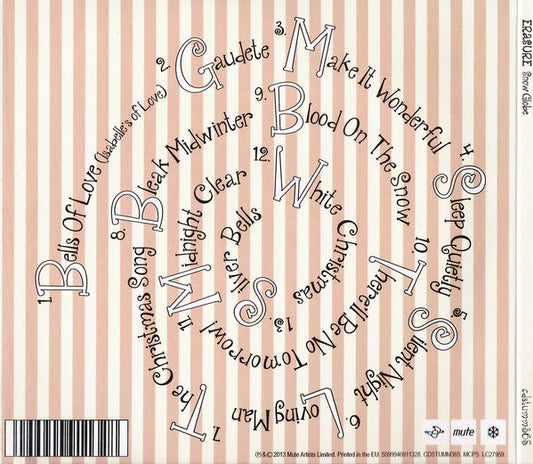 1. Bells Of Love (Isabelle's of Love)
2. Gaudete
3. Make It Wonderful
4. Sleep Quietly
5. Silent Night
6. Loving Man
7. The Christmas Song
8. Bleak Midwinter
9. Blood On The Snow
10. There'll Be No Tomorrow
11. Midnight Clear
12. White Christmas
13. Silver Bells
ERASURE Snow Globe
cdstumm365
mute
℗ & © 2013 Mute Artists Limited. Printed in the EU. 5099940911328. CDSTUMM365. MCPS. LC27959.